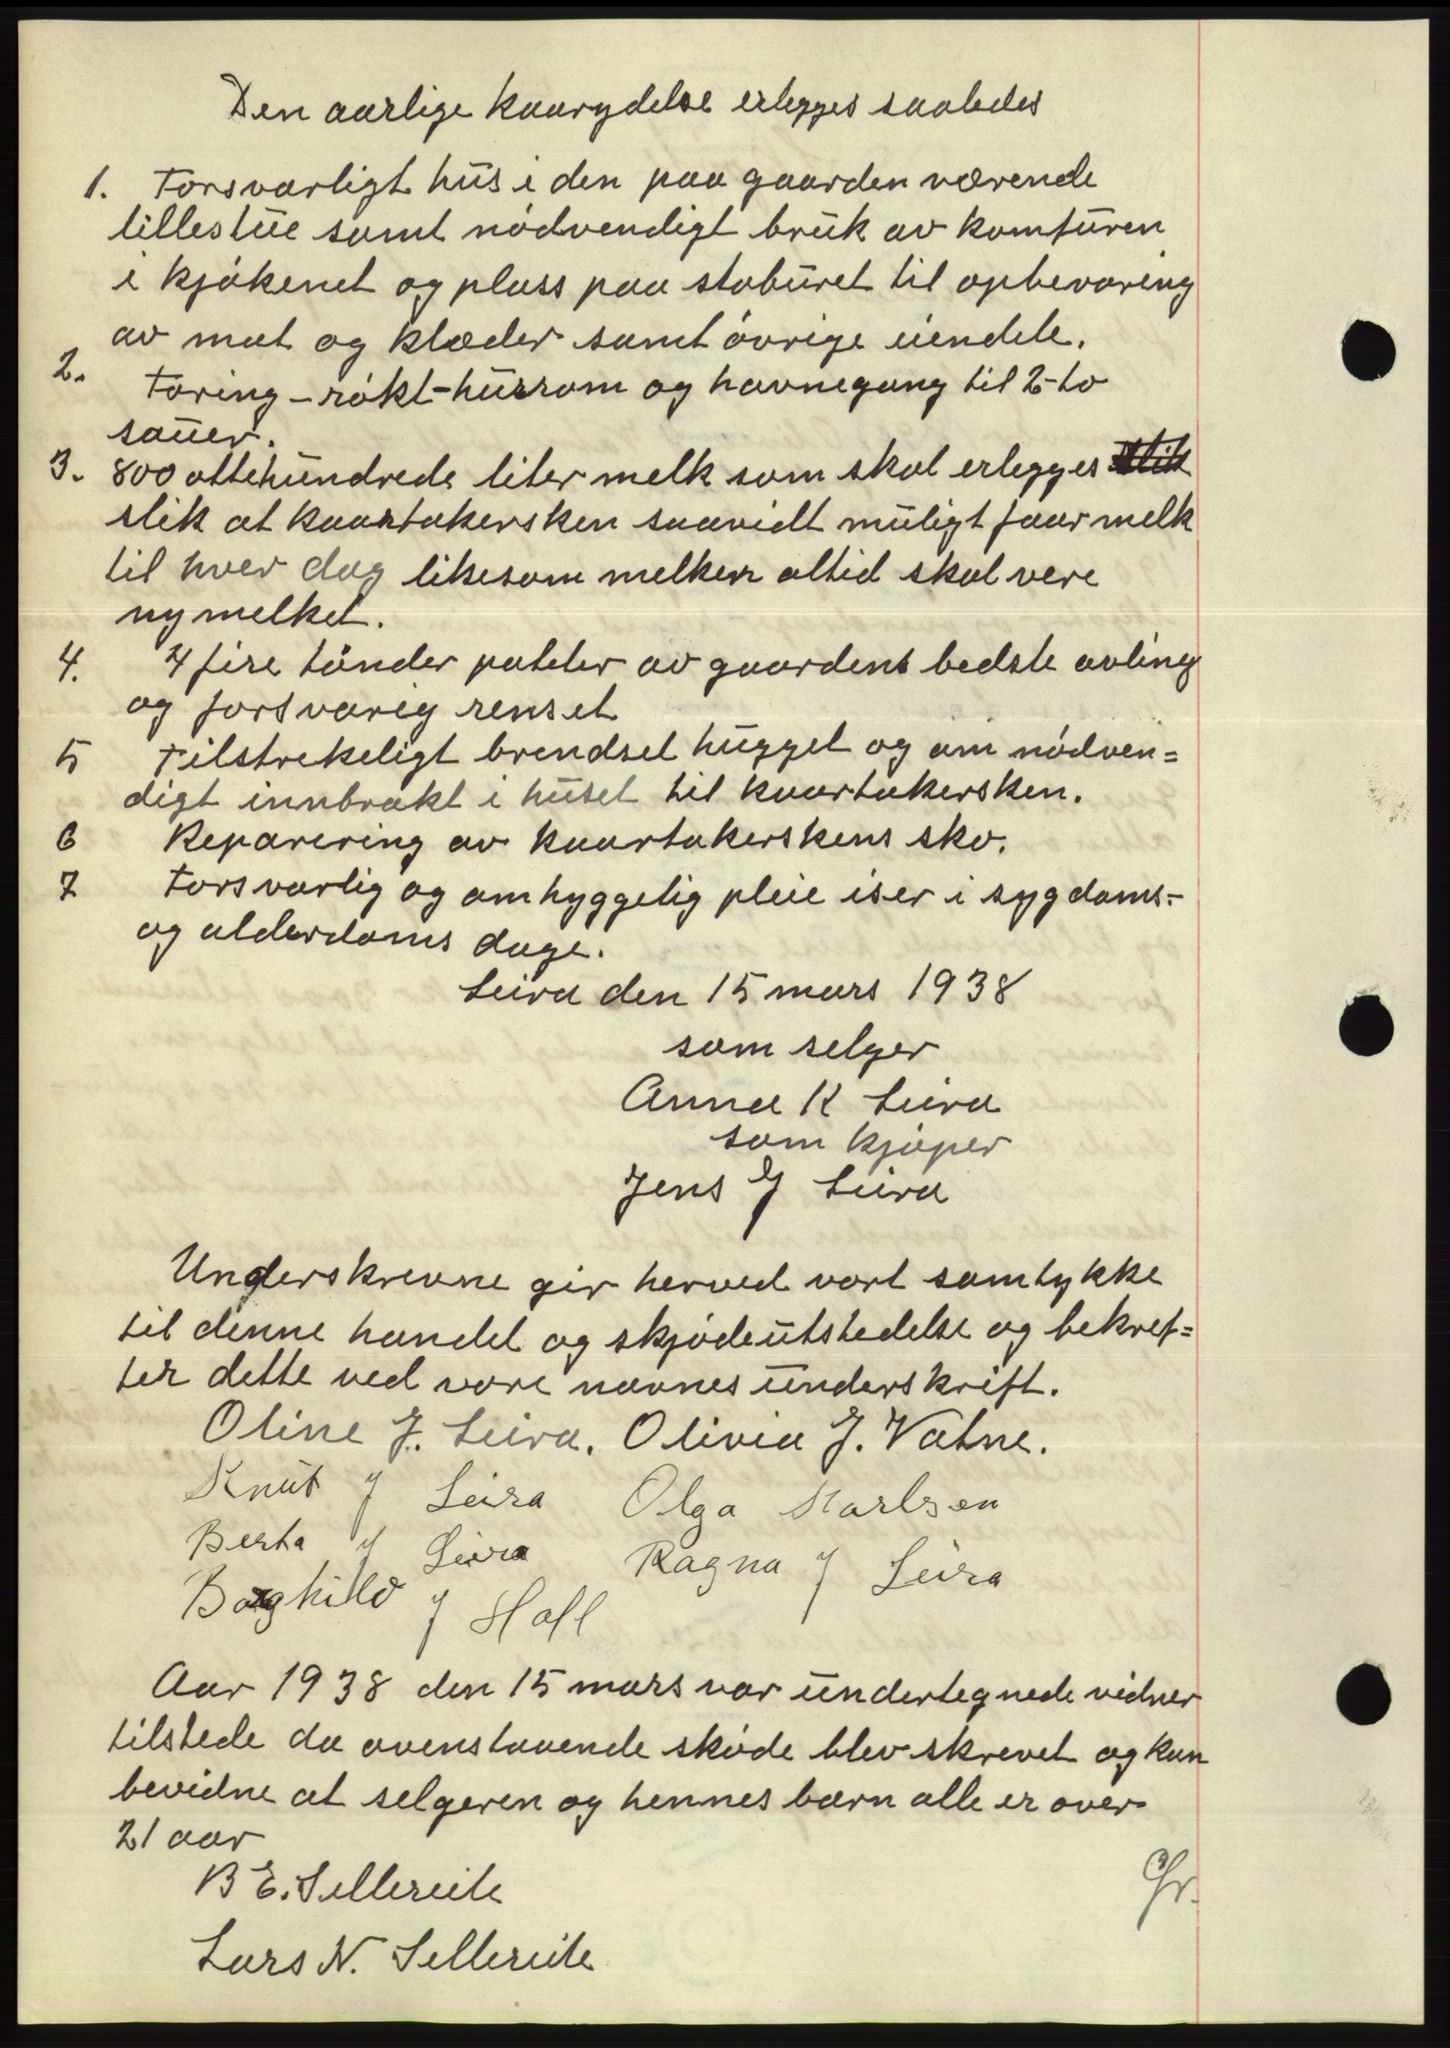 Den aarlige kaarydelse erlegges saaledes
1. Forsvarligt hus i den paa gaarden værende
lillestue samt nødvendigt bruk av komfuren
i kjøkenet og plass paa staburet til opbevaring
av mat og klæder samt øvrige eiendele.
2. Foring - røkt - husrom og havnegang til 2-to
sauer.
3. 800 ottehundrede liter melk som skal erlegges slik
slik at kaartakersken saavidt muligt faar melk
til hver dag likesom melken altid skal vere
nymelket.
4. 4 fire tønder poteter av gaardens bedste avling
og forsvarig renset
5 Tilstrekeligt brendsel hugget og om nødven=
digt innbrakt i huset til kaartakersken.
6 Reparering av kaartakerskens sko.
7 Forsvarlig og omhyggelig pleie iser i sygdoms-
og alderdoms dage.
Leira den 15 mars 1938
som selger
Anna K Leira
som kjøper
Jens J Leira
Underskrevne gir herved vort samtykke
til denne handel og skjødeutstedelse og bekref=
ter dette ved vore navnes underskrift.
Oline J. Leira. Olivia J. Vatne.
Knut J Leira Olga Karlsen
Berta J Leira Ragna J Leira
Borghild J Hall
Aar 1938 den 15 mars var undertegnede vidner
tilstede da ovenstaaende skøde blev skrevet og kan
bevidne at selgeren og hennes barn alle er over
21 aar
B E. Sellereite
Lars N. Sellereite